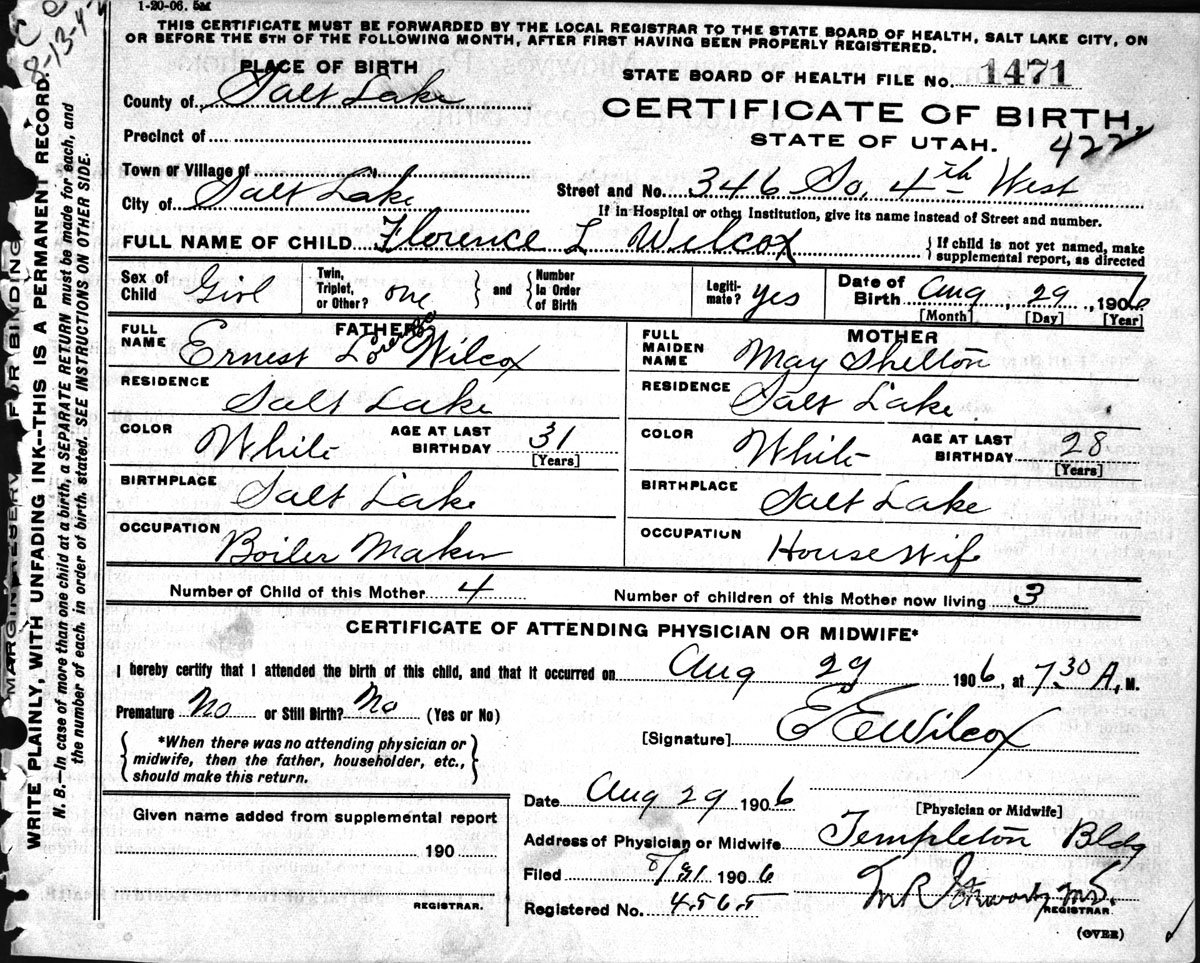 1-20-06. 5M
8-13-4-
THIS CERTIFICATE MUST BE FORWARDED BY THE LOCAL REGISTRAR TO THE STATE BOARD OF HEALTH, SALT LAKE CITY, ON
OR BEFORE THE 5TH OF THE FOLLOWING MONTH, AFTER FIRST HAVING BEEN PROPERLY REGISTERED.
PLACE OF BIRTH
STATE BOARD OF HEALTH FILE No. 1471
County of Salt Lake
CERTIFICATE OF BIRTH.
Precinct of
STATE OF UTAH.
422
Town or Village of
City of Salt Lake
Street and No. 346 So, 4th West
If in Hospital or other Institution, give its name instead of Street and number.
FULL NAME OF CHILD Florence L Wilcox
{If child is not yet named, make
supplemental report, as directed
Sex of Child Girl
Twin, Triplet, or Other? one } and { Number In Order of Birth
Legiti-mate? yes
Date of Birth Aug 29, 1906
[Month] [Day] [Year]
FATHER
FULL NAME Ernest Lorenzo Wilcox
MOTHER
FULL MAIDEN NAME May Shelton
RESIDENCE Salt Lake
RESIDENCE Salt Lake
COLOR White AGE AT LAST BIRTHDAY 31 [Years]
COLOR White AGE AT LAST BIRTHDAY 28 [Years]
BIRTHPLACE Salt Lake
BIRTHPLACE Salt Lake
OCCUPATION Boiler Maker
OCCUPATION House Wife
Number of Child of this Mother 4 Number of children of this Mother now living 3
CERTIFICATE OF ATTENDING PHYSICIAN OR MIDWIFE*
I hereby certify that I attended the birth of this child, and that it occurred on Aug 29 1906, at 7.30 A, M.
Premature No or Still Birth? No (Yes or No)
[Signature] E E Wilcox
{*When there was no attending physician or
midwife, then the father, householder, etc.,
should make this return.}
Date Aug 29 1906
[Physician or Midwife]
Given name added from supplemental report
Address of Physician or Midwife Templeton Bldg
190
Filed 8/31 1906
REGISTRAR.
Registered No. 4565
REGISTRAR.
(OVER)
MARGIN RESERV FOR BINDING
WRITE PLAINLY, WITH UNFADING INK--THIS IS A PERMANENT RECORD.
N. B.—In case of more than one child at a birth, a SEPARATE RETURN must be made for each, and
the number of each, in order of birth, stated. SEE INSTRUCTIONS ON OTHER SIDE.